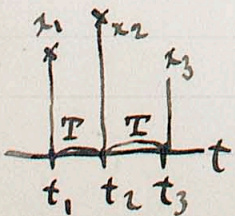 x₁ x₂
x₃
T T
t
t₁ t₂ t₃